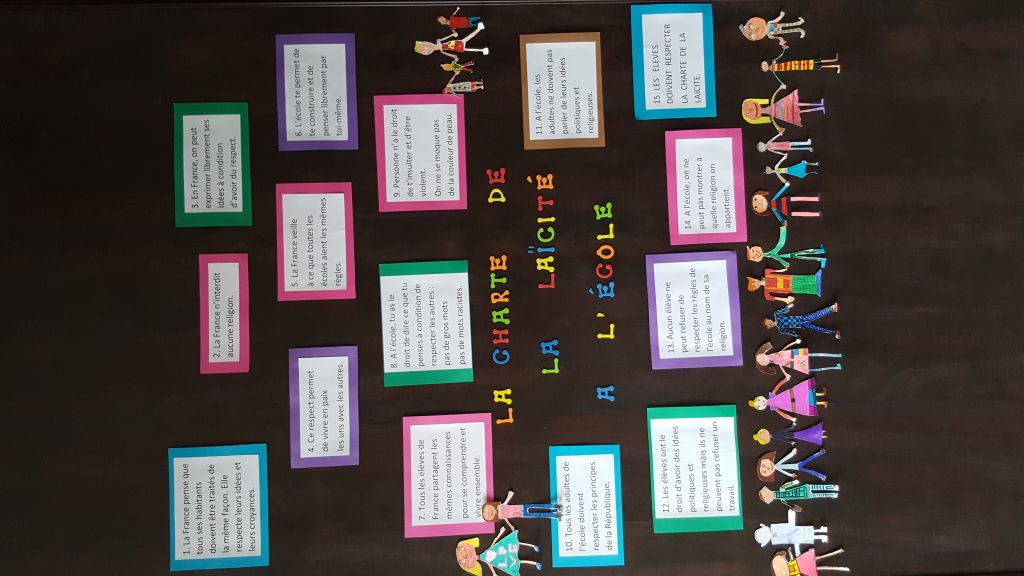 1. La France pense que
tous ses habitants
doivent être traités de
la même façon. Elle
respecte leurs idées et
leurs croyances.
2. La France n'interdit
aucune religion.
3. En France, on peut
exprimer librement ses
idées à condition
d'avoir du respect.
4. Ce respect permet
de vivre en paix
les uns avec les autres.
5. La France veille
à ce que toutes les
écoles aient les mêmes
règles.
6. L'école te permet de
te construire et de
penser librement par
toi-même.
7. Tous les élèves de
France partagent les
mêmes connaissances
pour se comprendre et
vivre ensemble.
8. A l'école, tu as le
droit de dire ce que tu
penses à condition de
respecter les autres :
pas de gros mots
pas de mots racistes.
9. Personne n'a le droit
de t'insulter et d'être
violent.
On ne se moque pas
de la couleur de peau.
LA CHARTE DE
LA LAÏCITÉ
A L'ÉCOLE
10. Tous les adultes de
l'école doivent
respecter les principes
de la République.
11. A l'école, les
adultes ne doivent pas
parler de leurs idées
politiques et
religieuses.
12. Les élèves ont le
droit d'avoir des idées
politiques et
religieuses mais ils ne
peuvent pas refuser un
travail.
13. Aucun élève ne
peut refuser de
respecter les règles de
l'école au nom de sa
religion.
14. A l'école, on ne
peut pas montrer à
quelle religion on
appartient.
15. LES ELEVES
DOIVENT RESPECTER
LA CHARTE DE LA
LAICITE.